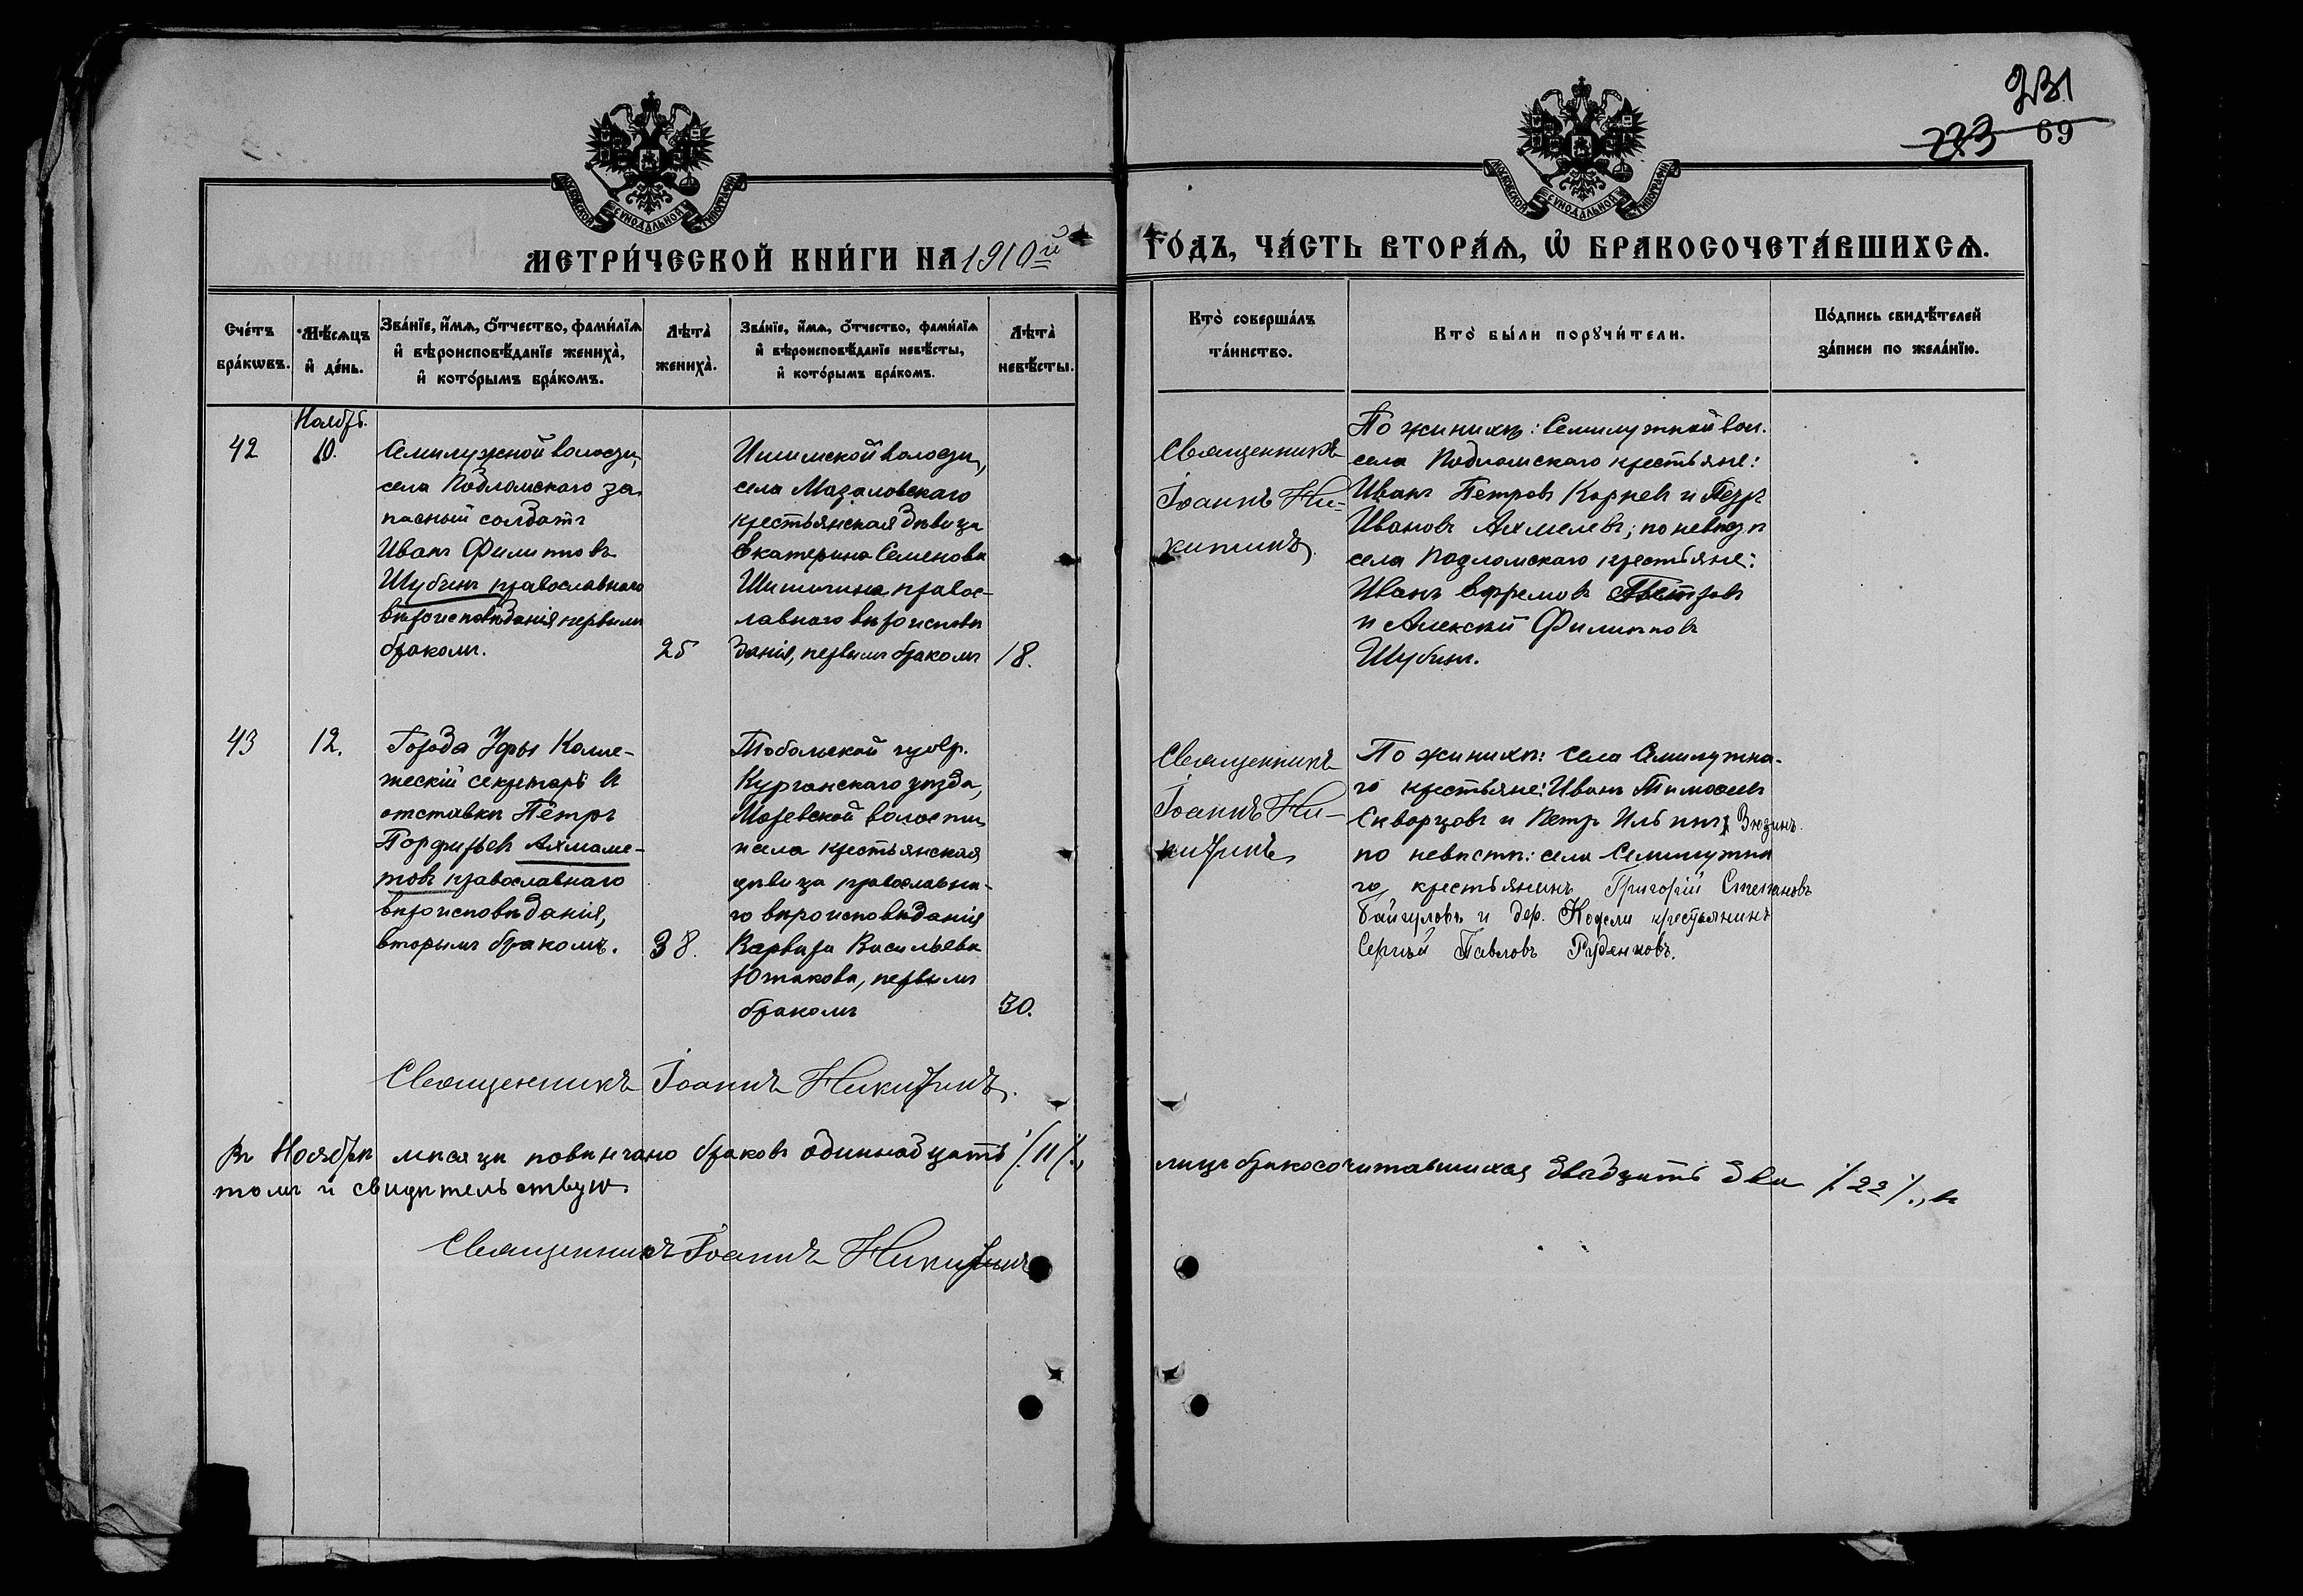 231
223 69
МОСКОВСКОЙ СУНОДАЛЬНОЙ ТИПОГРАФІИ
МОСКОВСКОЙ СУНОДАЛЬНОЙ ТИПОГРАФІИ
МЕТРИ́ЧЕСКОЙ КНИ́ГИ НА 1910й ГО́ДЪ, ЧА́СТЬ ВТОРА́Я, Ѡ БРАКОСОЧЕТА́ВШИХСЯ.
Сче́тъ бра́кѡвъ.
Мѣ́сяцъ и де́нь.
Зва́нїе, и́мя, о́тчество, фами́лїя и вѣроисповѣ́данїе жениха̀, и кото́рымъ бра́комъ.
Лѣта̀ жениха̀.
Зва́нїе, и́мя, о́тчество, фами́лїя и вѣроисповѣ́данїе невѣ́сты, и кото́рымъ бра́комъ.
Лѣта̀ невѣ́сты.
Кто̀ соверша́лъ та́инство.
Кто̀ бы́ли порꙋчи́тели.
По́дпись свидѣ́телей за́писи по жела́нїю.
Ноябрь.
42
10.
Семилужной волости,
села Подломскаго за-
пасный солдатъ
Иванъ Филипповъ
Шубинъ православнаго
вѣроисповѣданія первымъ
бракомъ.
25
Ишимской волости,
села Мазаловскаго
крестьянская дѣвица
Екатерина Семенова
Шишигина, правос-
лавнаго вѣроисповѣ
данія, первымъ бракомъ
18.
Священникъ
Іоаннъ Ни-
китинъ.
По женихѣ: Семилужной вол.
села Подломскаго крестьяне:
Иванъ Петровъ Корнев и Петръ
Ивановъ Ахмелевъ; по невѣстѣ
села Подломскаго крестьяне:
Иванъ Ефремовъ Петровъ
и Алексѣй Филипповъ
Шубинъ.
43
12.
Города Уфы Колле-
жескій секретарь въ
отставкѣ Пётръ
Порфирьев Ахмаме-
товъ православнаго
вѣроисповѣданія,
вторымъ бракомъ.
38.
Тобольской губ.
Курганскаго уѣзда,
Моревской волости
и села крестьянская
дѣвица православна-
го вѣроисповѣданія
Варвара Васильева
Ютакова, первымъ
бракомъ
30.
Священникъ
Іоаннъ Ни-
китинъ
По женихѣ: села Семилужна-
го крестьяне: Иванъ Тимофеевъ
Скворцовъ и Петръ Ильинъ Зюзинъ.
по невѣстѣ: села Семилужна
го, крестьянинъ Григорій Степановъ
Байгуловъ и дер. Коде́ли крестьянинъ
Сергѣй Павловъ Руденковъ.
Священникъ Іоаннъ Никитинъ.
Въ Ноябрѣ мѣсяцѣ повѣнчано браковъ одиннадцать /.11/., лицъ бракосочитавшихся двадцать два /.22/., въ
томъ и свидѣтельствую.
Священникъ Іоаннъ Никитинъ